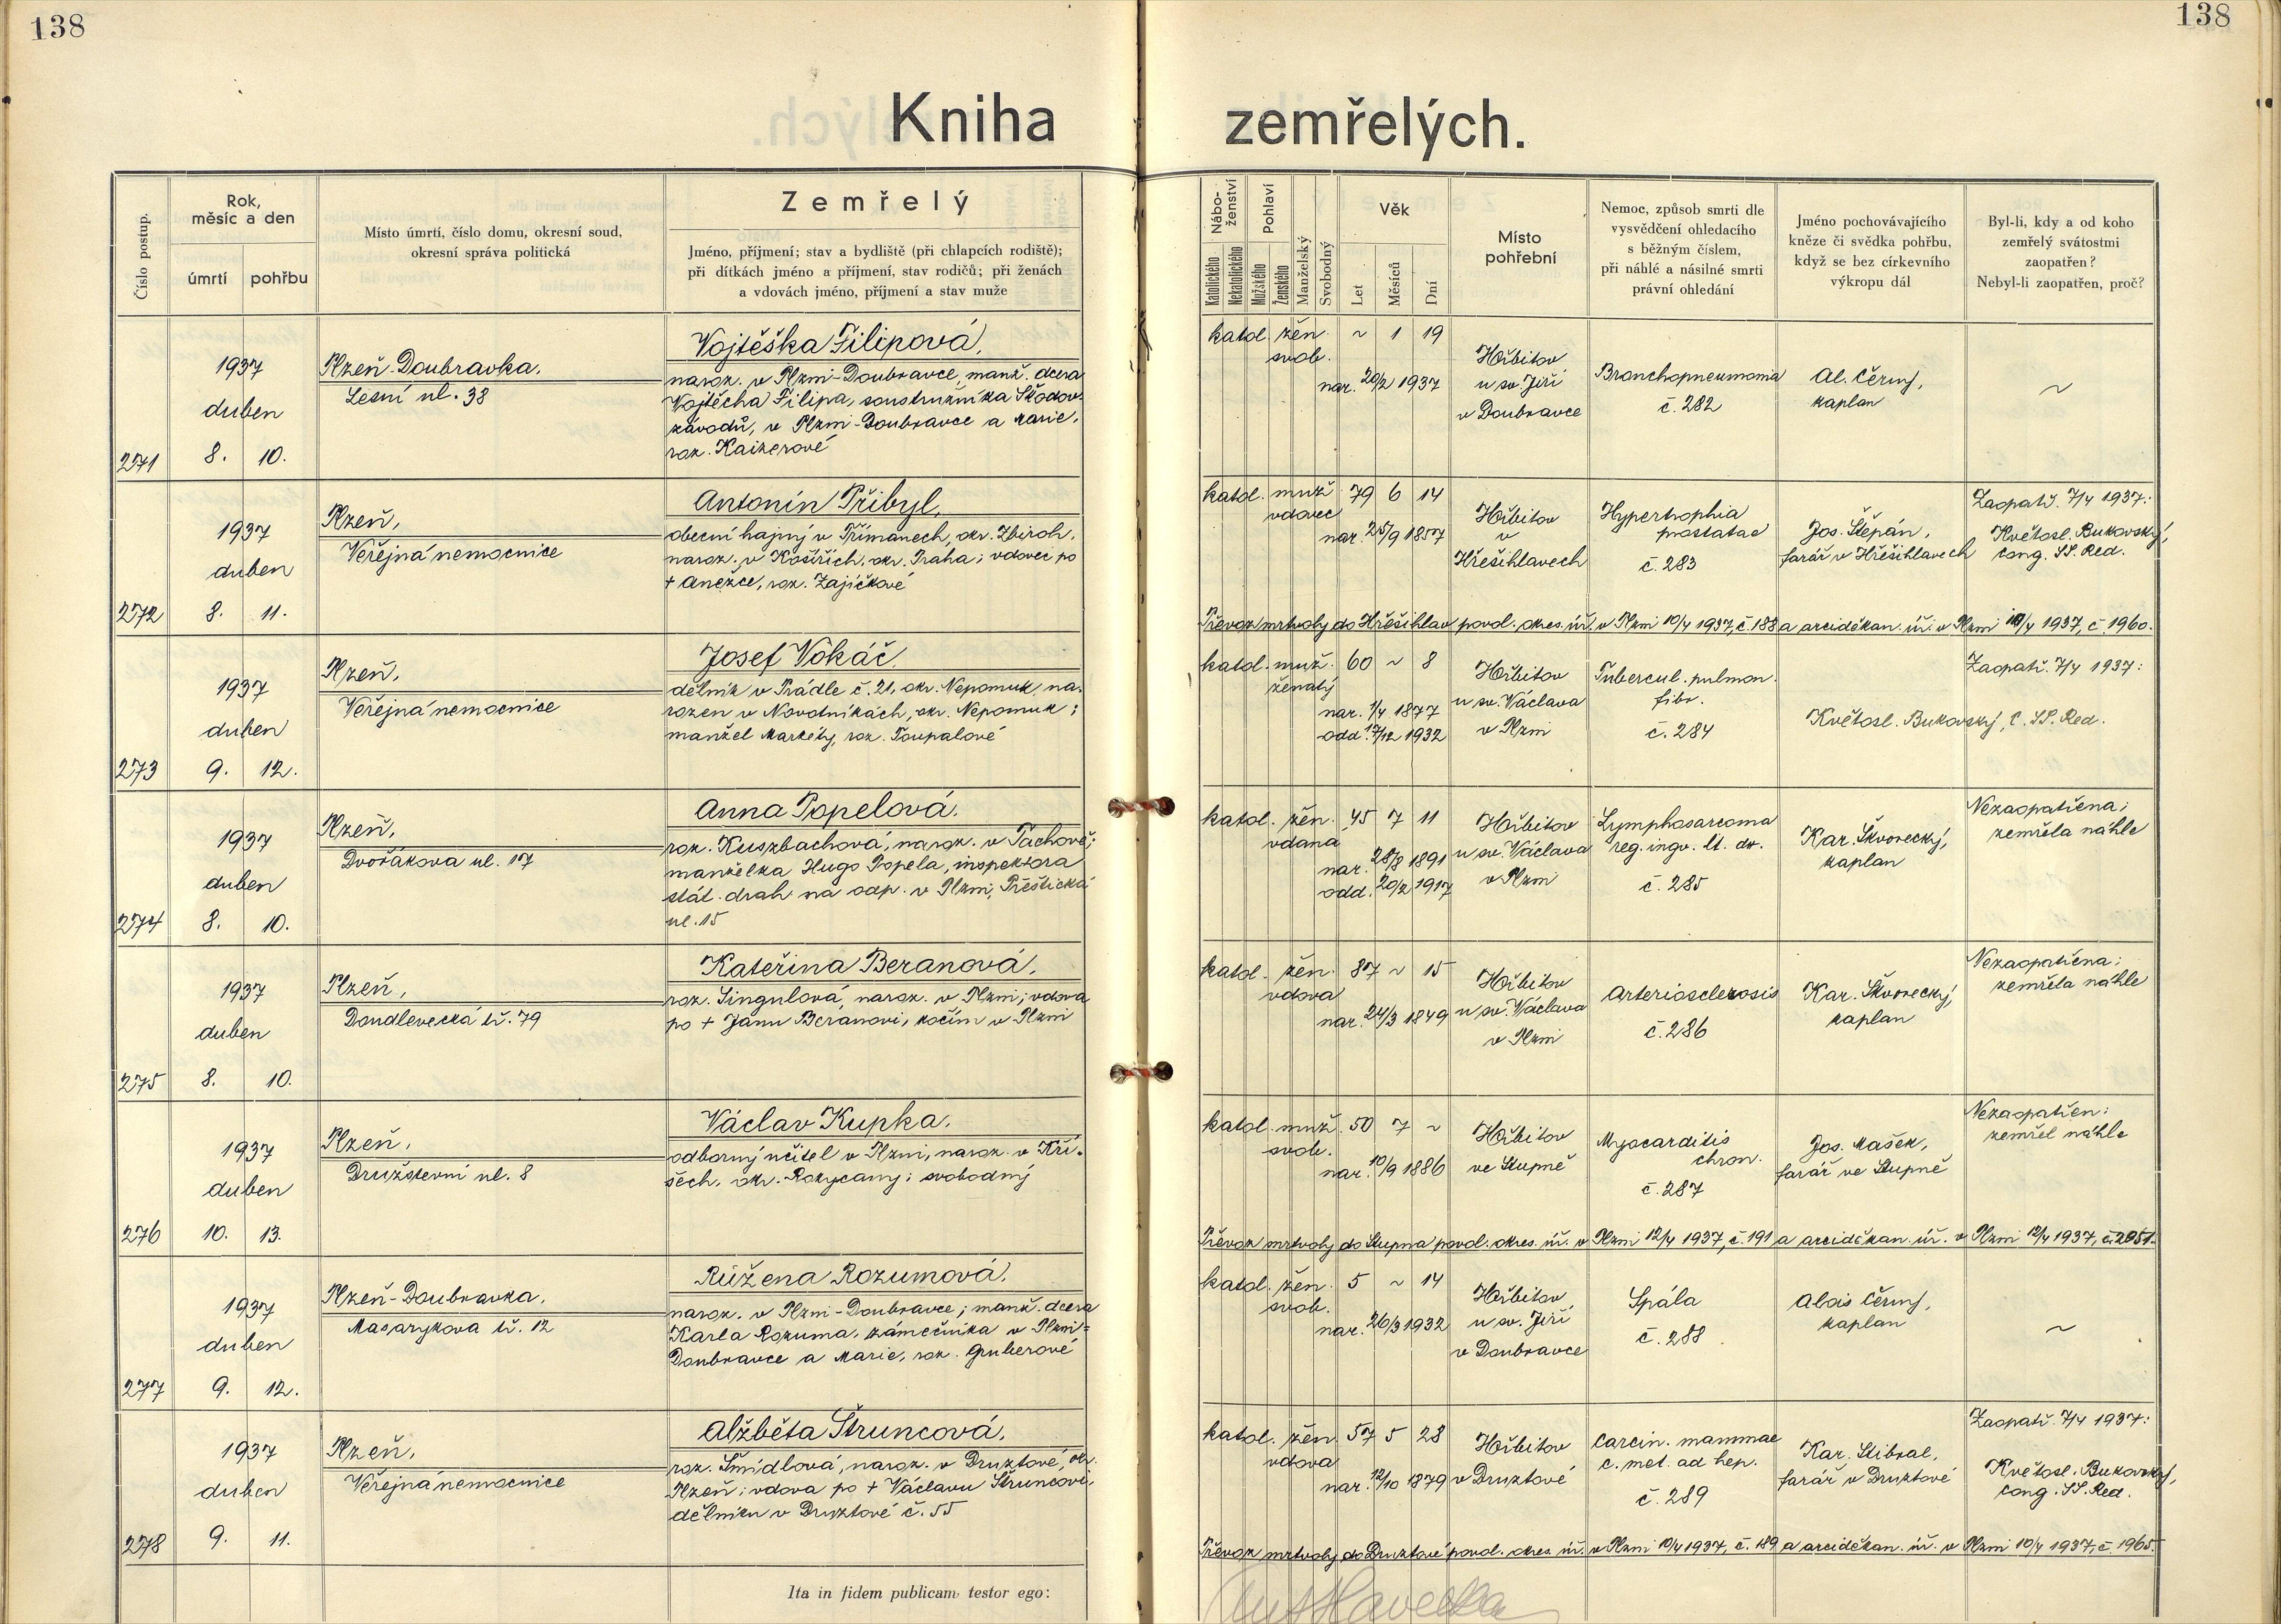 138
138
Kniha zemřelých.
Číslo postup.
Rok, měsíc a den
úmrtí
pohřbu
Místo úmrtí, číslo domu, okresní soud,
okresní správa politická
Zemřelý
Jméno, příjmení; stav a bydliště (při chlapcích rodiště);
při dítkách jméno a příjmení, stav rodičů; při ženách
a vdovách jméno, příjmení a stav muže
Nábo-
ženství
Katolického
Nekatolického
Pohlaví
Mužského
Ženského
Manželský
Svobodný
Věk
Let
Měsíců
Dní
Místo
pohřební
Nemoc, způsob smrti dle
vysvědčení ohledacího
s běžným číslem,
při náhlé a násilné smrti
právní ohledání
Jméno pochovávajícího
kněze či svědka pohřbu,
když se bez církevního
výkropu dál
Byl-li, kdy a od koho
zemřelý svátostmi
zaopatřen?
Nebyl-li zaopatřen, proč?
271
1937
duben
8. 10.
Plzeň-Doubravka,
Lesní ul. 38
Vojtěška Filipová,
naroz. v Plzni-Doubravce, manž. dcera
Vojtěcha Filipa, soustružníka Škodov.
závodů, v Plzni-Doubravce a Marie,
roz. Kaizerové
katol. žen. ~ 1 19
svob.
nar. 20/2 1937
Hřbitov
u sv. Jiří
v Doubravce
Bronchopneumonia
č. 282
Al. Černý,
kaplan
~
272
1937
duben
8. 11.
Plzeň,
Veřejná nemocnice
Antonín Přibyl,
obecní hajný v Přímanech, okr. Zbiroh,
naroz. v Košířích, okr. Praha; vdovec po
+ Anežce, roz. Zajíčkové
katol. muž. 79 6 14
vdovec
nar. 25/9 1857
Hřbitov
v
Hřešihlavech
Hypertrophia
prostatae
č. 283
Jos. Štěpán,
farář v Hřešihlavech
Zaopatř. 7/4 1937:
Květosl. Bukovský,
cong. SS. Red.
Převoz mrtvoly do Hřešihlav povol. okres. úř. v Plzni 10/4 1937, č. 188 a arciděkan. úř. v Plzni 10/4 1937, č. 1960.
273
1937
duben
9. 12.
Plzeň,
Veřejná nemocnice
Josef Vokáč,
dělník v Prádle č. 21, okr. Nepomuk, na-
rozen v Novotníkách, okr. Nepomuk;
manžel Markéty, roz. Toupalové
katol. muž. 60 ~ 8
ženatý
nar. 1/4 1877
odd. 17/12 1932
Hřbitov
u sv. Václava
v Plzni
Tubercul. pulmon.
fibr.
č. 284
Zaopatř. 7/4 1937:
Květosl. Bukovský, C. SS. Red.
274
1937
duben
8. 10.
Plzeň,
Dvořákova ul. 17
Anna Popelová,
roz. Kuszbachová, naroz. v Tachově;
manželka Hugo Popela, inspektora
stát. drah na odp. v Plzni, Přeštická
ul. 15
katol. žen. 45 7 11
vdaná
nar. 28/8 1891
odd. 20/2 1917
Hřbitov
u sv. Václava
v Plzni
Lymphosarcoma
reg. ingv. lt. dx.
č. 285
Kar. Škvorecký,
kaplan
Nezaopatřena;
zemřela náhle
275
1937
duben
8. 10.
Plzeň,
Doudlevecká tř. 79
Kateřina Beranová,
roz. Singulová, naroz. v Plzni; vdova
po + Janu Beranovi, kočím v Plzni
katol. žen. 87 ~ 15
vdova
nar. 24/3 1849
Hřbitov
u sv. Václava
v Plzni
Arteriosclerosis
č. 286
Kar. Škvorecký,
kaplan
Nezaopatřena;
zemřela náhle
276
1937
duben
10. 13.
Plzeň,
Družstevní ul. 8
Václav Kupka,
odborný učitel v Plzni, naroz. v Kří-
šech, okr. Rokycany; svobodný
katol. muž. 50 7 ~
svob.
nar. 10/9 1886
Hřbitov
ve Stupně
Myocarditis
chron.
č. 287
Jos. Mašek,
farář ve Stupně
Nezaopatřen:
zemřel náhle
Převoz mrtvoly do Stupna povol. okres. úř. v Plzni 12/4 1937, č. 191 a arciděkan. úř. v Plzni 12/4 1937, č. 2051.
277
1937
duben
9. 12.
Plzeň-Doubravka,
Masarykova tř. 12
Růžena Rozumová,
naroz. v Plzni-Doubravce; manž. dcera
Karla Rozuma, zámečníka v Plzni-
Doubravce a Marie, roz. Gruberové
katol. žen. 5 ~ 14
svob.
nar. 26/3 1932
Hřbitov
u sv. Jiří
v Doubravce
Spála
č. 288
Alois Černý,
kaplan
~
278
1937
duben
9. 11.
Plzeň,
Veřejná nemocnice
Alžběta Štruncová,
roz. Šmídlová, naroz. v Druztové, okr.
Plzeň; vdova po + Václavu Štruncovi,
dělníku v Druztové č. 55
katol. žen. 57 5 28
vdova
nar. 12/10 1879
Hřbitov
v Druztové
Carcin. mammae
c. met. ad hep.
č. 289
Kar. Stibral,
farář v Druztové
Zaopatř. 7/4 1937:
Květosl. Bukovský,
cong. SS. Red.
Převoz mrtvoly do Druztové povol. okres. úř. v Plzni 10/4 1937, č. 189 a arciděkan. úř. v Plzni 10/4 1937, č. 1965.
Ita in fidem publicam testor ego: